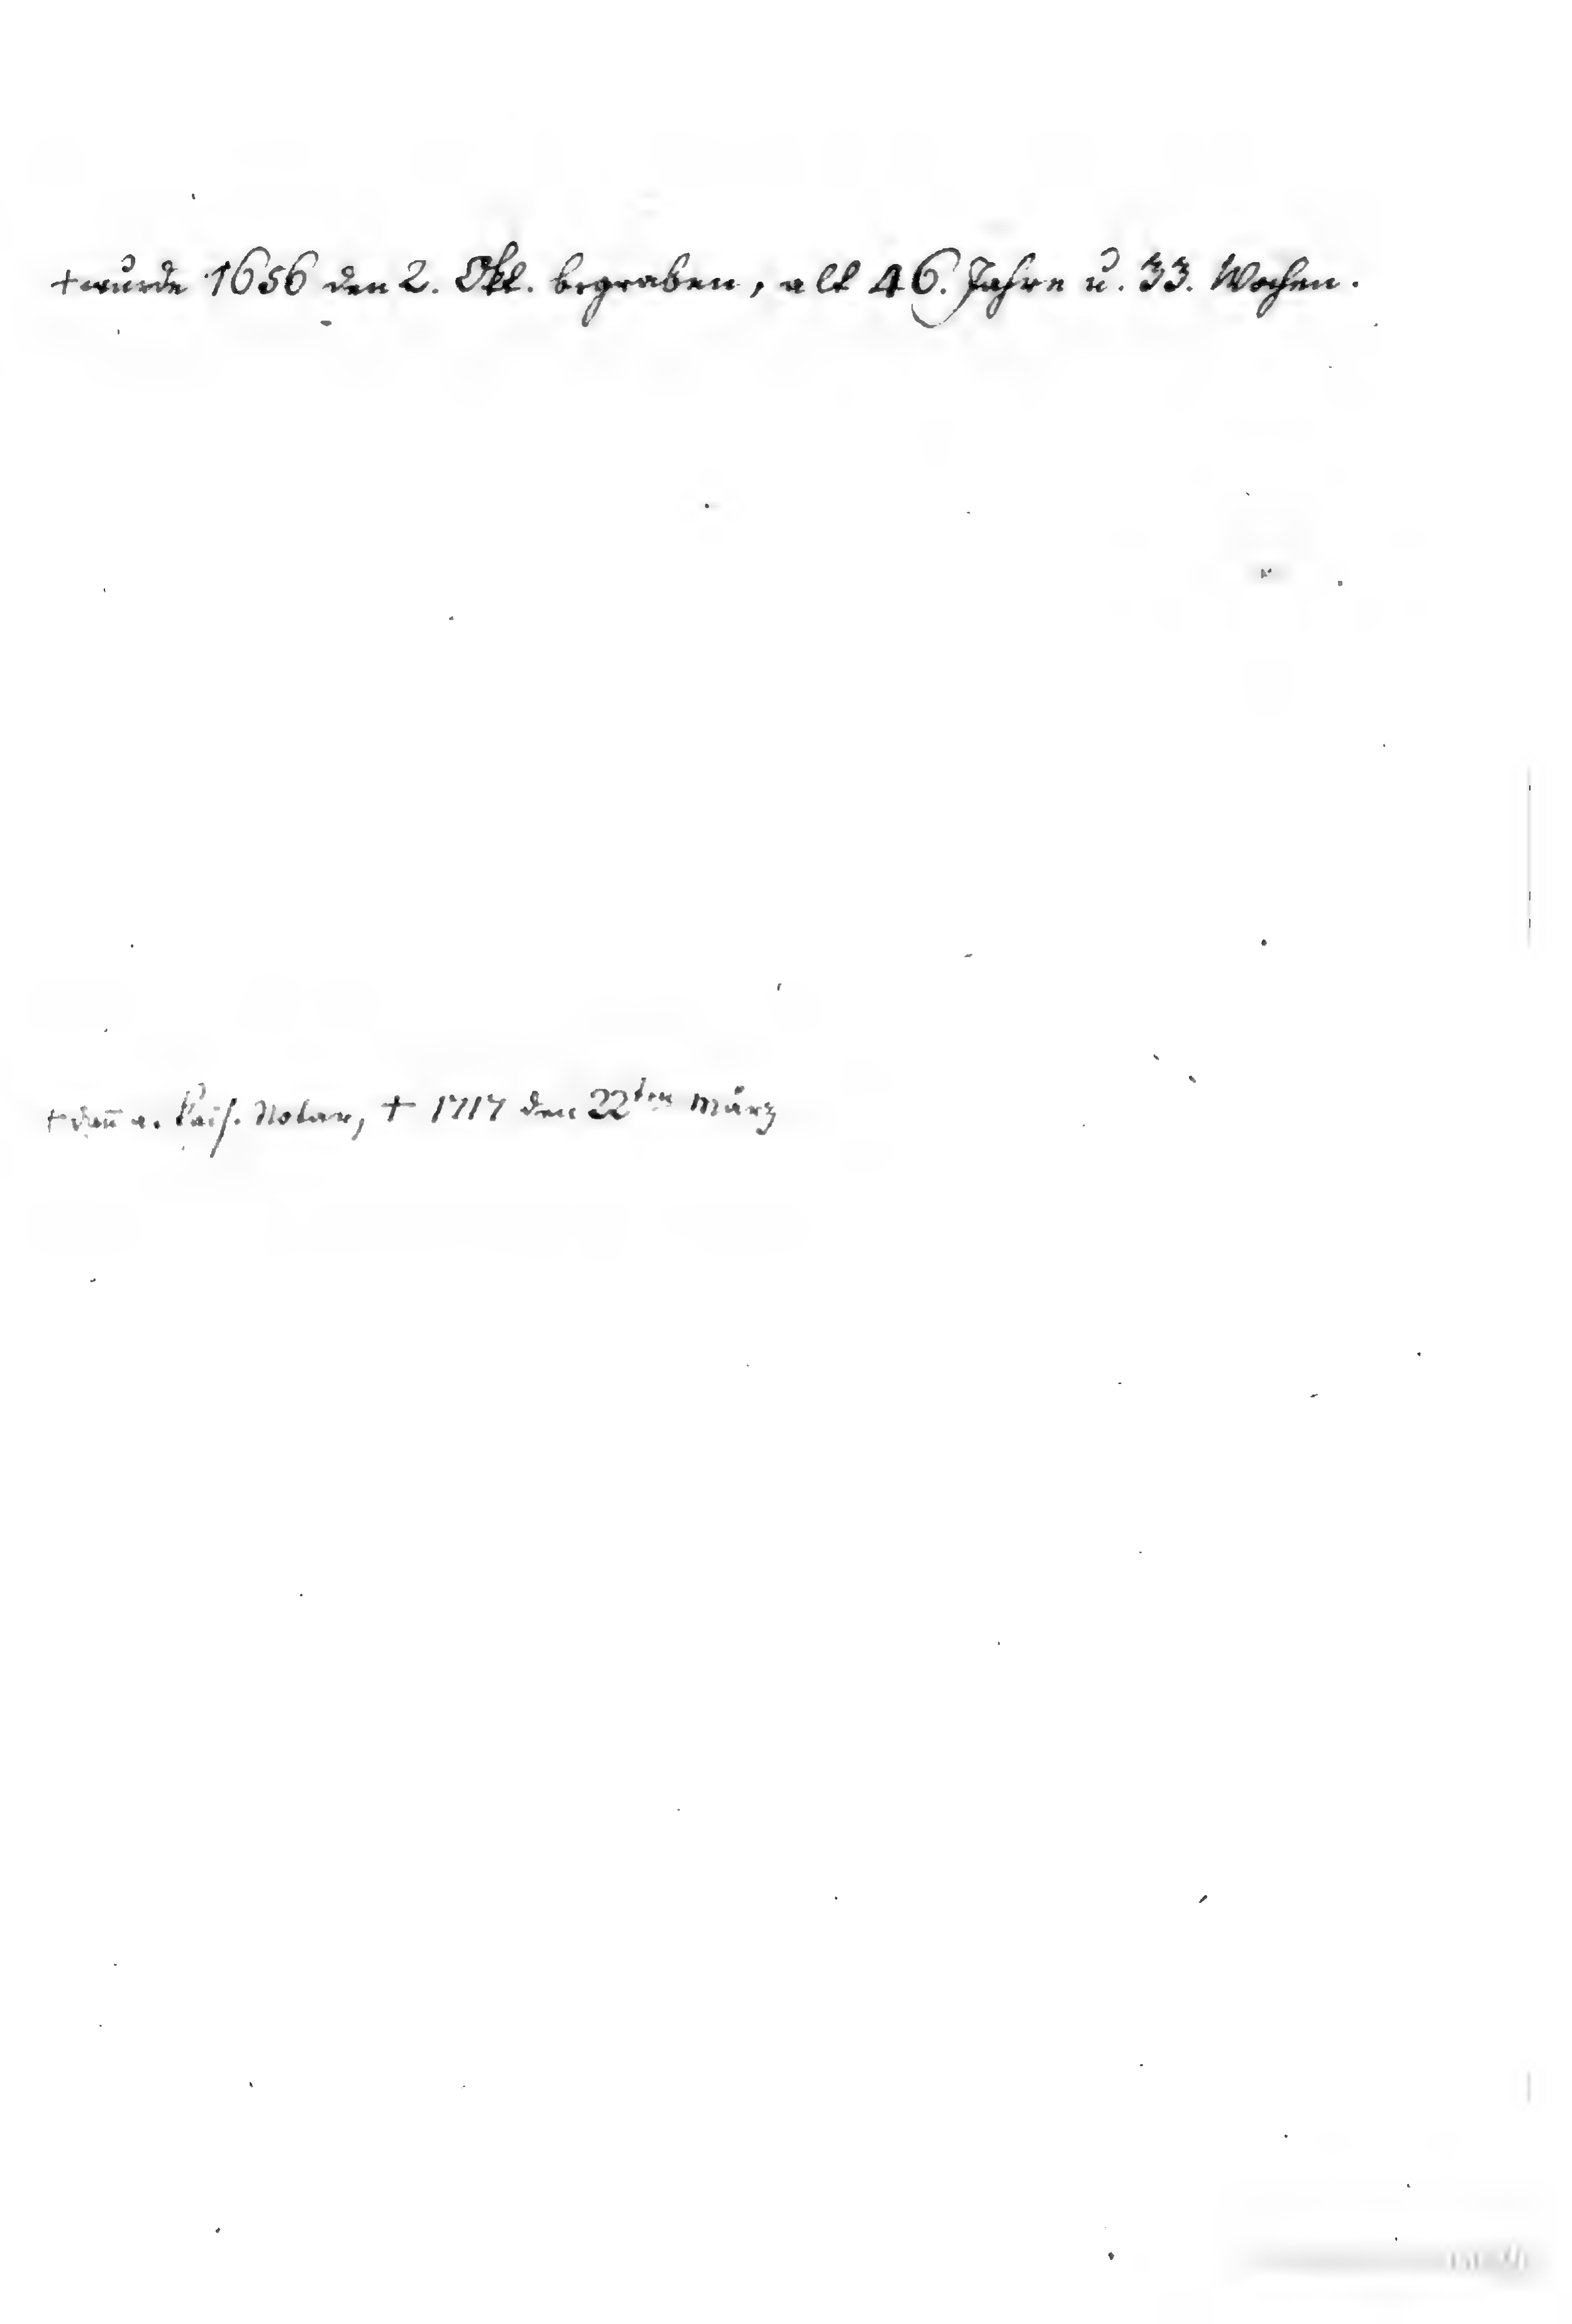 + wurde 1656 den 2. Okt. begraben, alt 46. Jahre u. 33. Wochen.
+ dañ a. Kais. Notar, † 1717 den 22ten März